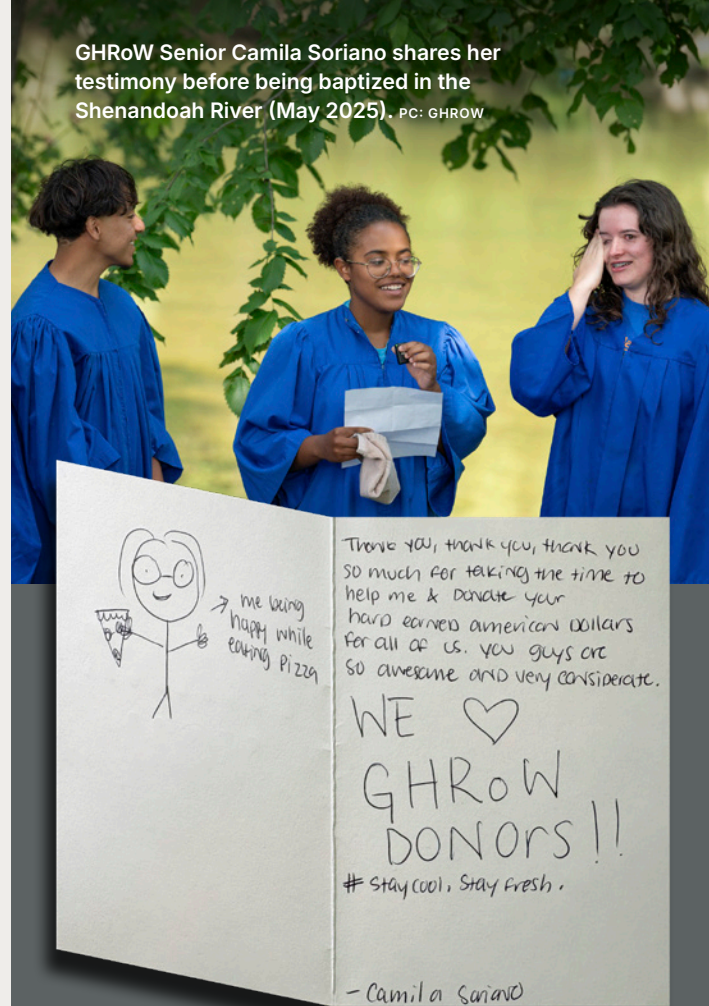 GHRoW Senior Camila Soriano shares her
testimony before being baptized in the
Shenandoah River (May 2025). PC: GHROW
me being
happy while
eating Pizza
Thank you, thank you, thank you
so much for taking the time to
help me & Donate your
hard earned american Dollars
for all of us. you guys are
so awesome and very considerate.
WE ♡
GHRoW
DONOrs!!
# stay cool, stay fresh.
- Camila Soriano